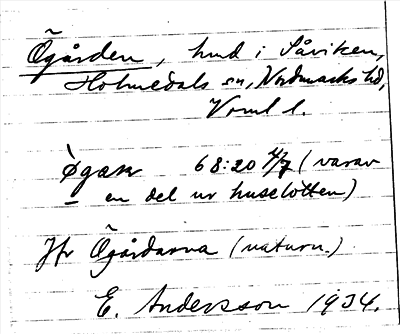 Ögården, hmd i Såviken,
Holmedals sn, Nordmarks hd,
Vrml l.
øgæɳ 68:20 4/7 (varav
en del ur huselotten)
Jfr Ögårdarna (naturn.)
E. Andersson 1934.